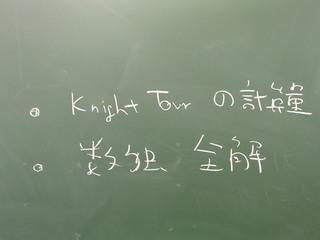 • Knight Tour の計算
• 数独 全解